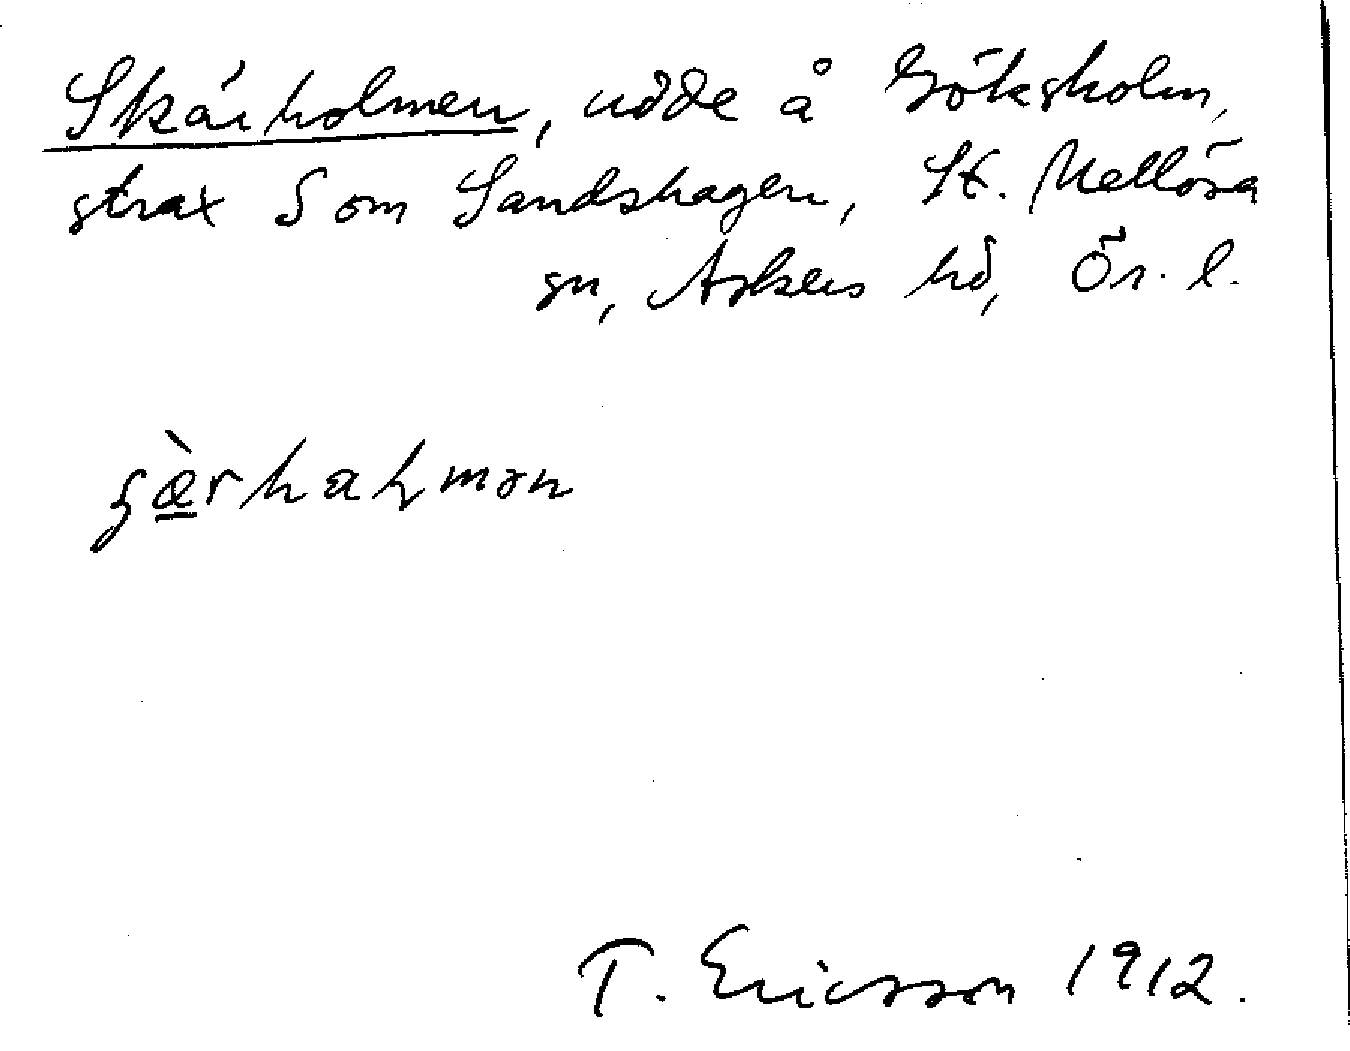 Skärholmen, udde å Göksholm,
strax S om Sandshagen, St. Mellösa
sn, Askers hd, Ör. l.
T. Ericsson 1912.